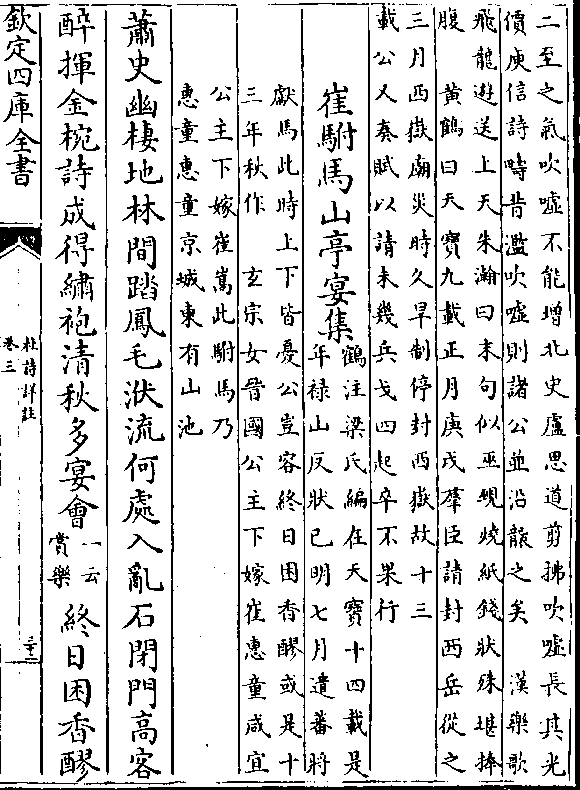 二至之氣吹噓不能增北史盧思道剪拂吹噓長其光
價庾信詩疇昔濫吹噓則諸公並沿襲之矣　漢樂歌
飛龍遊送上天朱瀚曰末句似巫覡燒紙錢狀殊堪捧
腹　黄鶴曰天寶九載正月庚戌羣臣請封西岳從之
三月西嶽廟災時久旱制停封西嶽故十三
載公又奏賦以請未幾兵戈四起卒不果行
崔駙馬山亭宴集
鶴注梁氏編在天寶十四載是
年禄山反狀已明七月遣蕃將
獻馬此時上下皆憂公豈容終日困香醪或是十
三年秋作　玄宗女晉國公主下嫁崔惠童咸宜
公主下嫁崔嵩此駙馬乃
惠童惠童京城東有山池
蕭史幽棲地林間踏鳳毛洑流何處入亂石閉門高客
醉揮金椀詩成得繡袍清秋多宴會一云賞樂終日困香醪
欽定四庫全書
杜詩詳註
卷三
三十二